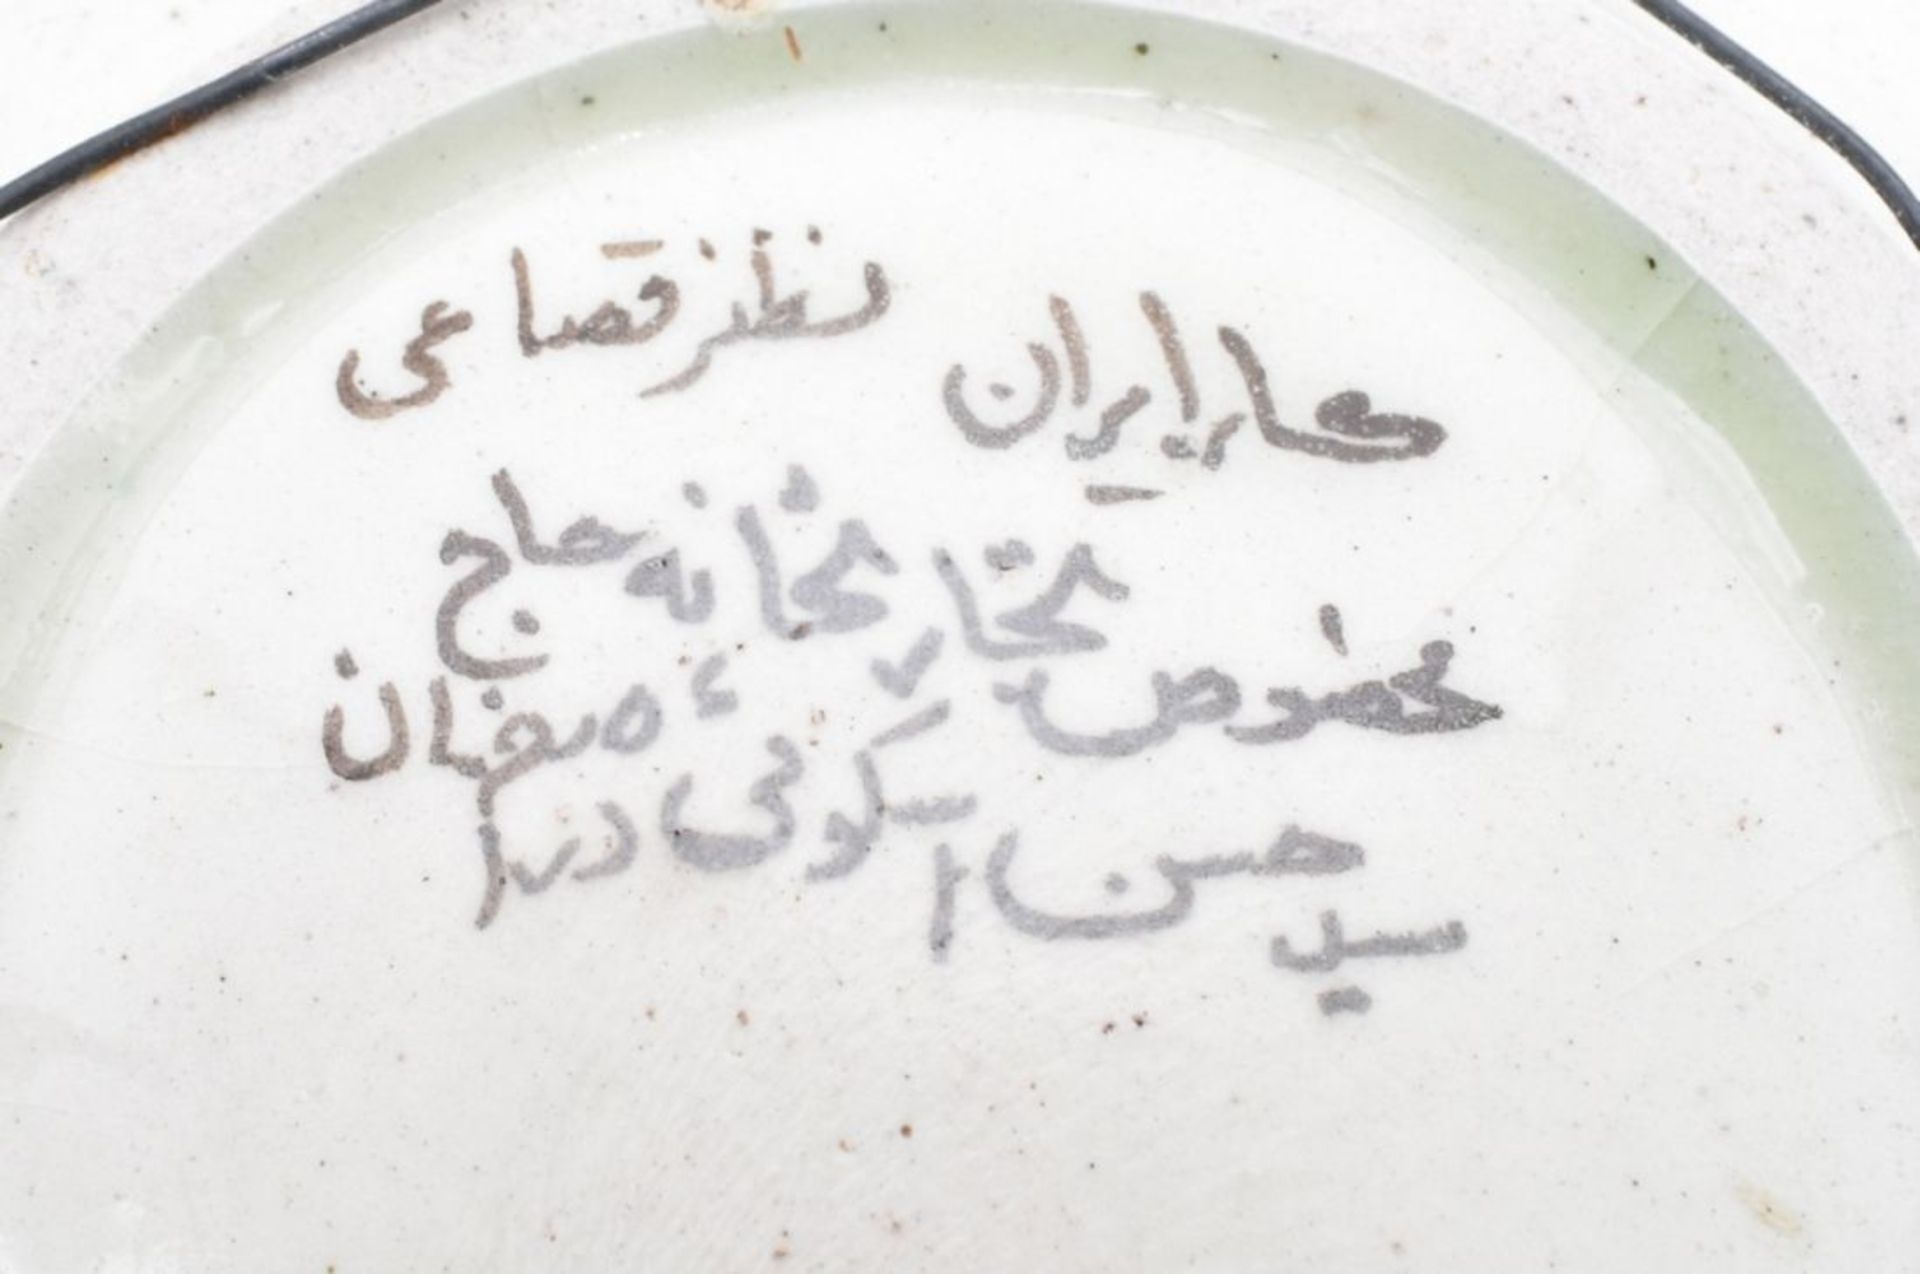 کار ایران نظنز قصاعی
مخصوص تجارتخانه حاج
سید حسن اسکوئی در اصفهان